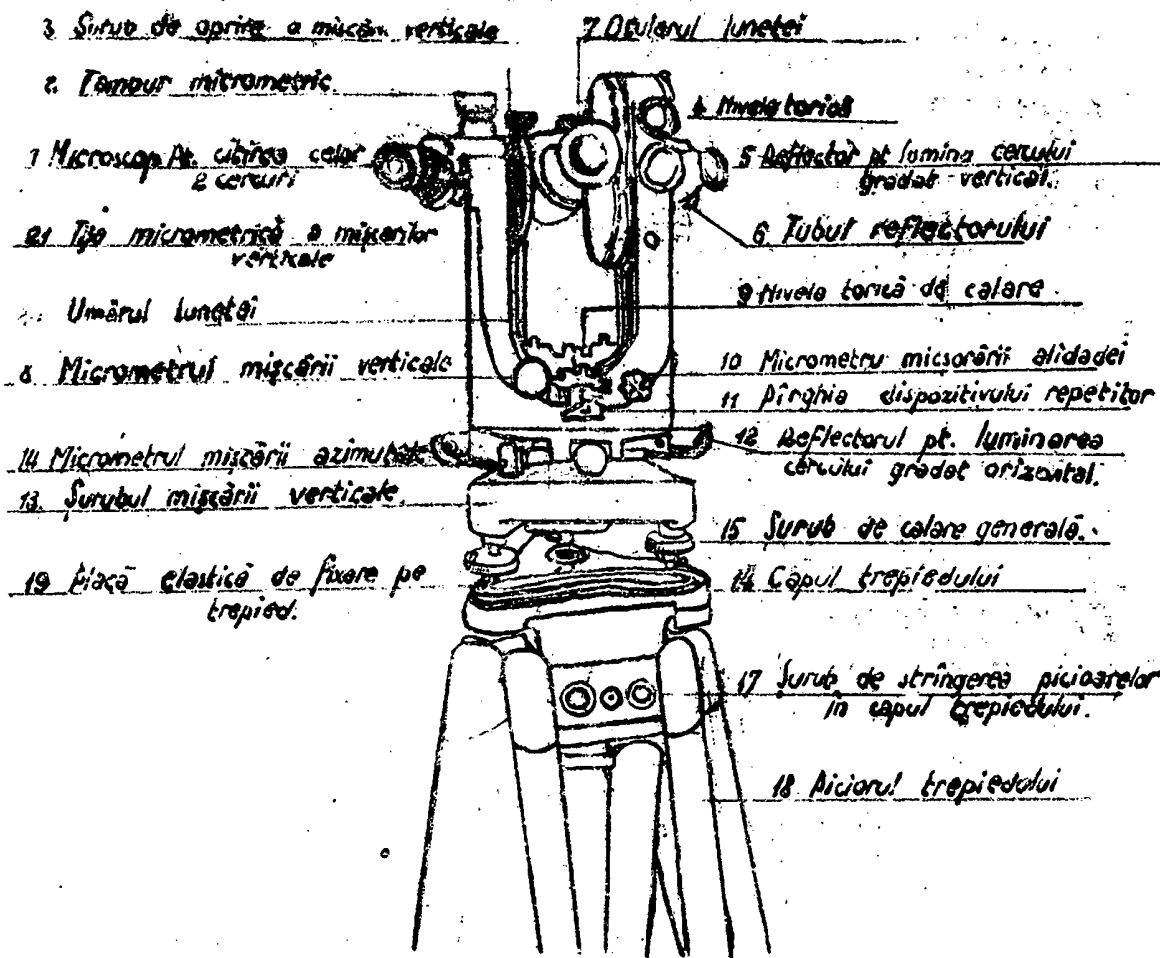 3 Surub de oprire a mișcării verticale
2. Tambur micrometric
1 Microscop Pt. citirea celor
2 cercuri
21 Tija micrometrică a mișcarilor
verticale
Umărul lunetei
8 Micrometrul mișcării verticale
14 Micrometrul mișcării azimutale
13. Surubul mișcării verticale.
19 Placă elastică de fixare pe
trepied.
7 Ocularul lunetei
4 Nivela torică
5 Reflector pt lumina cercului
gradat vertical.
6 Tubul reflectorului
9 Nivela torică de calare
10 Micrometru micșorării alidadei
11 Pîrghia dispozitivului repetitor
12 Reflectorul pt. luminarea
cercului gradat orizontal.
15 Surub de calare generală.
Capul trepiedului
17 Surub de stringerea picioarelor
in capul trepiedului.
18 Piciorul trepiedului